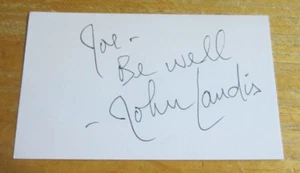 Joe -
Be well
- John Landis